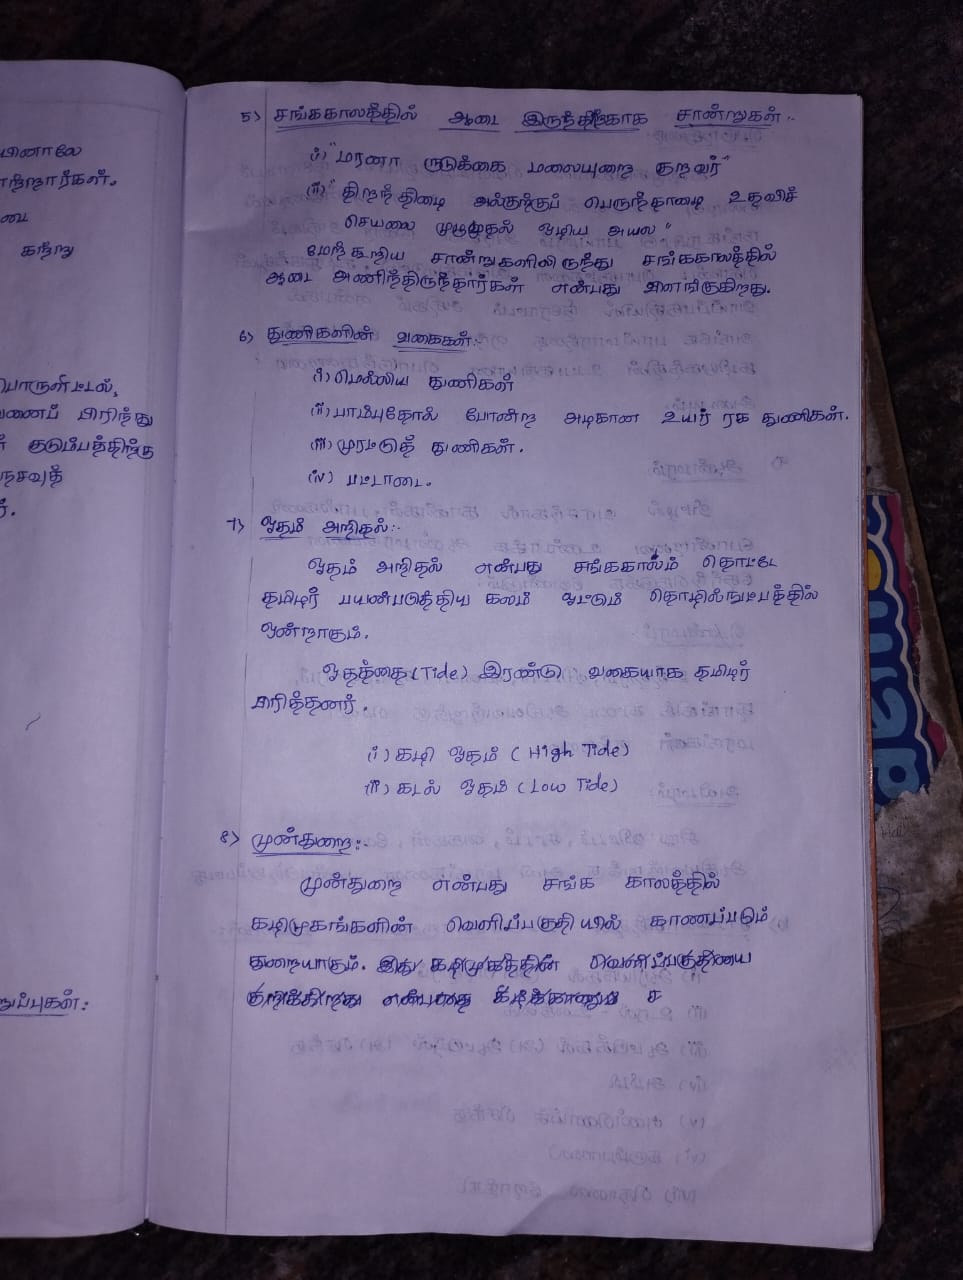 யினாலே
ஈற்றார்கள்.
கற்று
பொருளீட்டல்,
குடும்பத்திற்கு
நெசவுத்
றுப்புகள்:
5) சங்ககாலத்தில் ஆடை இருந்ததற்காக சான்றுகள் :-
(i) "மரனா ருடுக்கை மலையுறை குறவர்"
(ii) "திறந்திடை அல்குற்குப் பெருந்தழை உதவிச்
செயலை முழுமுதல் ஒழிய அயல"
மேற்கூறிய சான்றுகளிலிருந்து சங்ககாலத்தில்
ஆடை அணிந்திருந்தார்கள் என்பது விளங்குகிறது.
6) துணிகளின் வகைகள் :-
(i) மெல்லிய துணிகள்
(ii) பாம்புதோல் போன்ற அழகான உயர் ரக துணிகள்.
(iii) முரட்டுத் துணிகள்.
(iv) பட்டாடை.
7) ஓதம் அறிதல் :-
ஓதம் அறிதல் என்பது சங்ககாலம் தொட்டே
தமிழர் பயன்படுத்திய கலம் ஓட்டும் தொழில்நுட்பத்தில்
ஒன்றாகும்.
ஓதத்தை (Tide) இரண்டு வகையாக தமிழர்
பிரித்தனர்.
(i) கழி ஓதம் (High Tide)
(ii) கடல் ஓதம் (Low Tide)
8) முன்துறை :-
முன்துறை என்பது சங்க காலத்தில்
கழிமுகங்களின் வெளிப்பகுதியில் காணப்படும்
துறையாகும். இது கழிமுகத்தின் வெளிப்பகுதியை
குறிக்கிறது என்பதை